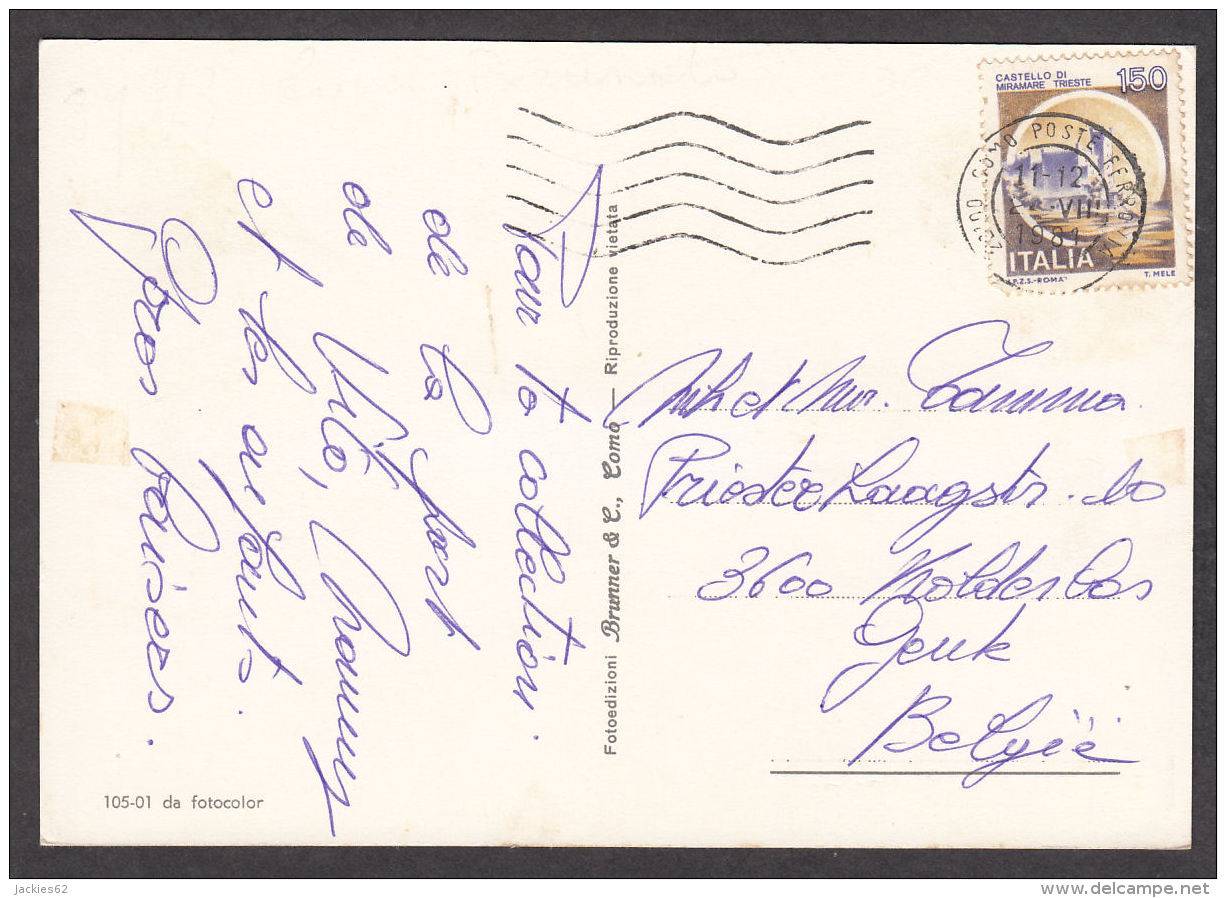 CASTELLO DI
MIRAMARE TRIESTE
150
22100 COMO POSTE FERROVIA
11-12
VIII
1981
ITALIA
I.P.Z.S.-ROMA
T. MELE
Pour ta collection.
de la part
de Vito, Mammy
et les enfants.
Gros baisers.
Fotoedizioni Brunner & C., Como — Riproduzione vietata
et Mvr.
Priester Laagstr.
3600 Kolderbos
Genk
België
105-01 da fotocolor
jackies62
delcampe.net